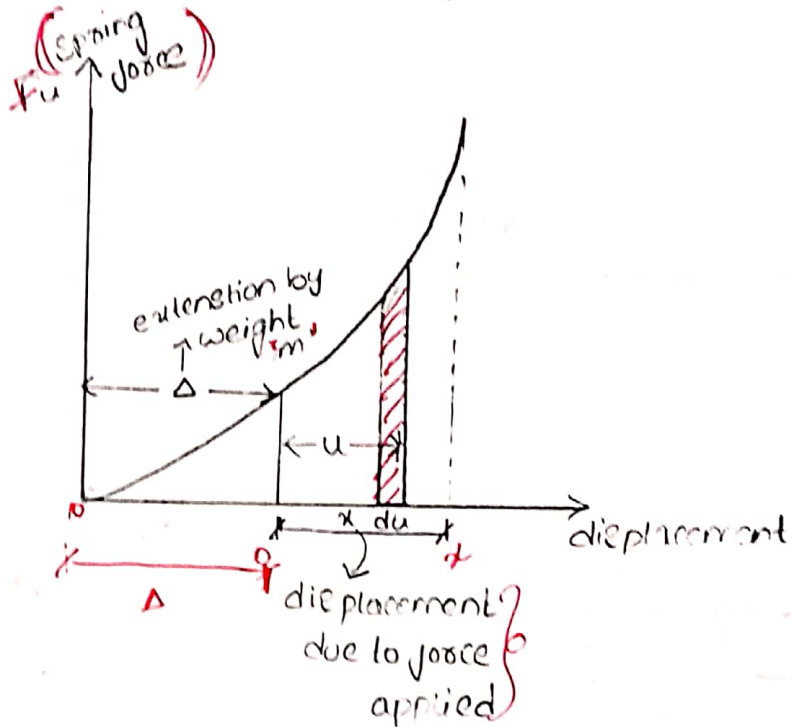 (Spring
force)
Fu
extenstion by
weight
'm'
Δ
u
x du
displacement
Δ
0
x
displacement
due to force
applied